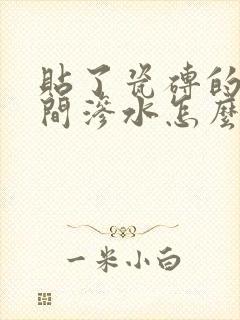 貼了瓷磚的
間滲水怎麼
一米小白